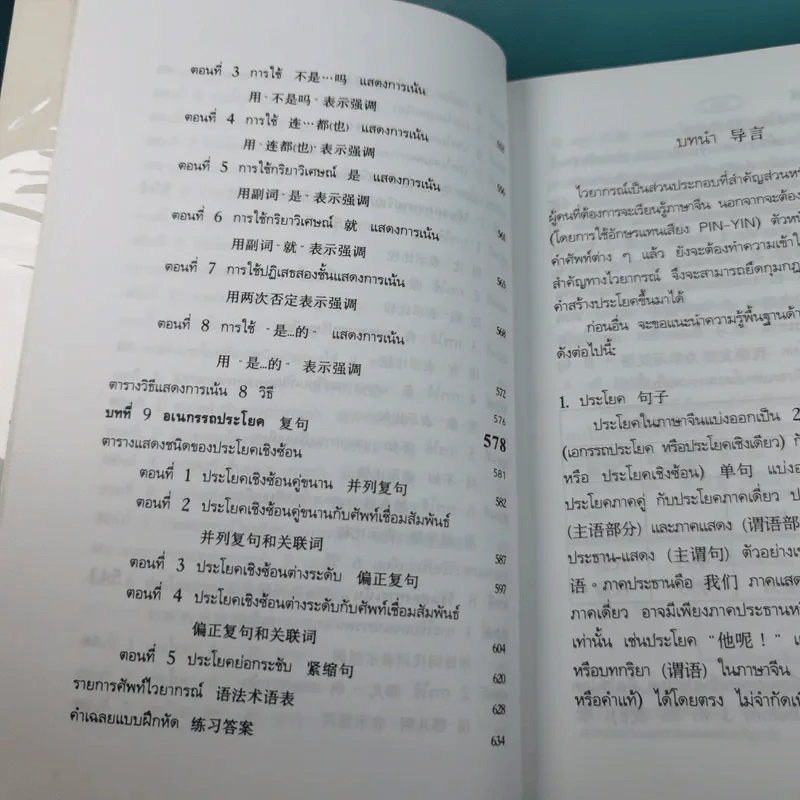 ตอนที่ 3 การใช้ 不是…吗 แสดงการเน้น
用“不是吗”表示强调
ตอนที่ 4 การใช้ 连…都(也) แสดงการเน้น
用“连都(也)”表示强调
ตอนที่ 5 การใช้กริยาวิเศษณ์ 是 แสดงการเน้น
用副词“是”表示强调
ตอนที่ 6 การใช้กริยาวิเศษณ์ 就 แสดงการเน้น 561
用副词“就”表示强调
ตอนที่ 7 การใช้ปฏิเสธสองชั้นแสดงการเน้น 565
用两次否定表示强调
ตอนที่ 8 การใช้ “是…的” แสดงการเน้น 568
用“是…的”表示强调
ตารางวิธีแสดงการเน้น 8 วิธี 572
576
บทที่ 9 อเนกรรถประโยค 复句 578
ตารางแสดงชนิดของประโยคเชิงซ้อน 581
ตอนที่ 1 ประโยคเชิงซ้อนคู่ขนาน 并列复句 582
ตอนที่ 2 ประโยคเชิงซ้อนคู่ขนานกับศัพท์เชื่อมสัมพันธ์
并列复句和关联词 587
ตอนที่ 3 ประโยคเชิงซ้อนต่างระดับ 偏正复句 597
ตอนที่ 4 ประโยคเชิงซ้อนต่างระดับกับศัพท์เชื่อมสัมพันธ์
偏正复句和关联词 604
ตอนที่ 5 ประโยคย่อกระชับ 紧缩句 620
รายการศัพท์ไวยากรณ์ 语法术语表 628
คำเฉลยแบบฝึกหัด 练习答案 634
บทนำ 导言
ไวยากรณ์เป็นส่วนประกอบที่สำคัญส่วนหน
ผู้คนที่ต้องการจะเรียนรู้ภาษาจีน นอกจากจะต้อง
(โดยการใช้อักษรแทนเสียง PIN-YIN) ตัวหนั
คำศัพท์ต่าง ๆ แล้ว ยังจะต้องทำความเข้าใ
สำคัญทางไวยากรณ์ จึงจะสามารถยึดกุมกฎ
คำสร้างประโยคขึ้นมาได้
ก่อนอื่น จะขอแนะนำความรู้พื้นฐานด้า
ดังต่อไปนี้:
1. ประโยค 句子
ประโยคในภาษาจีนแบ่งออกเป็น 2
(เอกรรถประโยค หรือประโยคเชิงเดียว) กั
หรือ ประโยคเชิงซ้อน) 单句 แบ่งอ
ประโยคภาคคู่ กับประโยคภาคเดี่ยว ป
(主语部分) และภาคแสดง (谓语部
ประธาน-แสดง (主谓句) ตัวอย่างเ
语。ภาคประธานคือ 我们 ภาคแสด
ภาคเดี่ยว อาจมีเพียงภาคประธานห
เท่านั้น เช่นประโยค “他呢！” เ
หรือบทกริยา (谓语) ในภาษาจีน
หรือคำแท้) ได้โดยตรง ไม่จำกัดเ